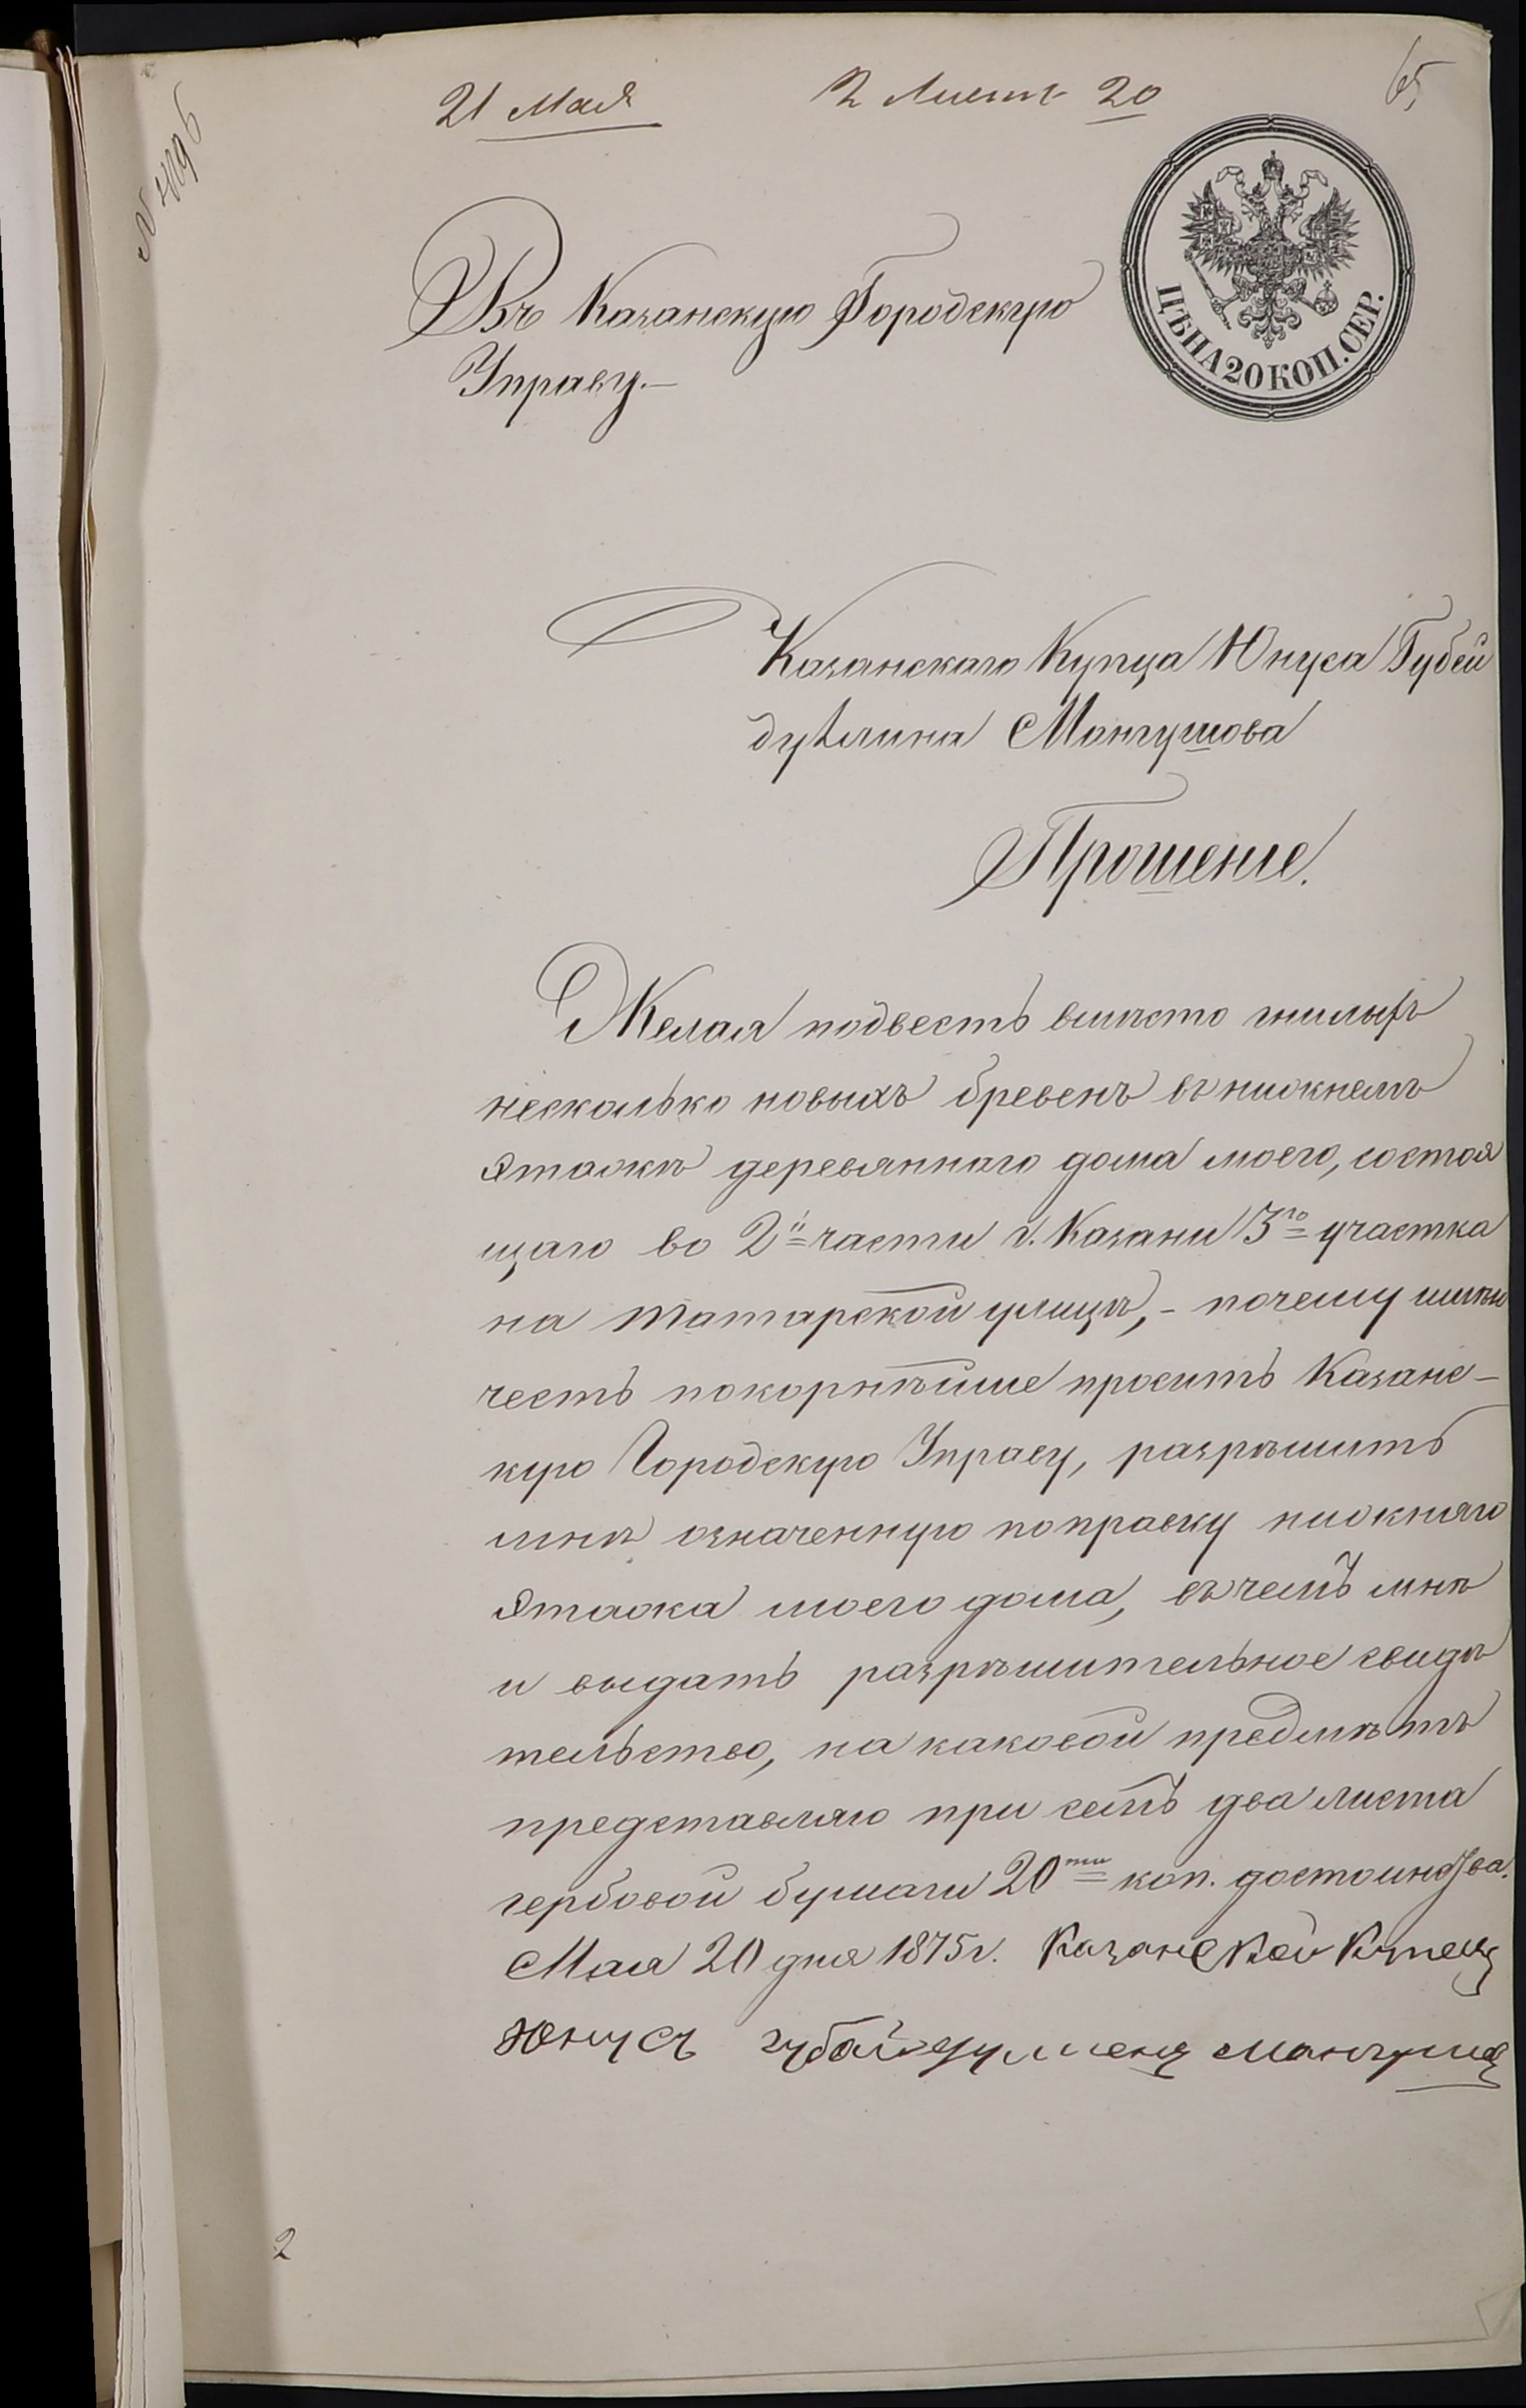 21 Мая 2 Листа 20
65
Въ Казанскую Городскую
Управу.—
ЦѢНА 20 КОП. СЕР.
Казанскаго Купца Юнуса Губей
дуллина Мангушова
Прошеніе.
Желая подвесть вмѣсто гнилыхъ
несколько новыхъ бревенъ въ нижнемъ
этажѣ деревяннаго дома моего, состоя
щаго во 2й части г. Казани 3го участка
на татарской улицѣ, - почему имѣю
честь покорнѣйше просить Казанс-
кую Городскую Управу, разрѣшить
мнѣ означенную поправку нижняго
этажа моего дома, въ чемъ мнѣ
и выдать разрѣшительное свидѣ
тельство, на каковой предмѣтъ
представляю при семъ два листа
гербовой бумаги 20ти коп. достоинства.
Мая 20 дня 1875 г. Казанской Купецъ
Юнусъ Губайдуллинъ Мангушъ
2